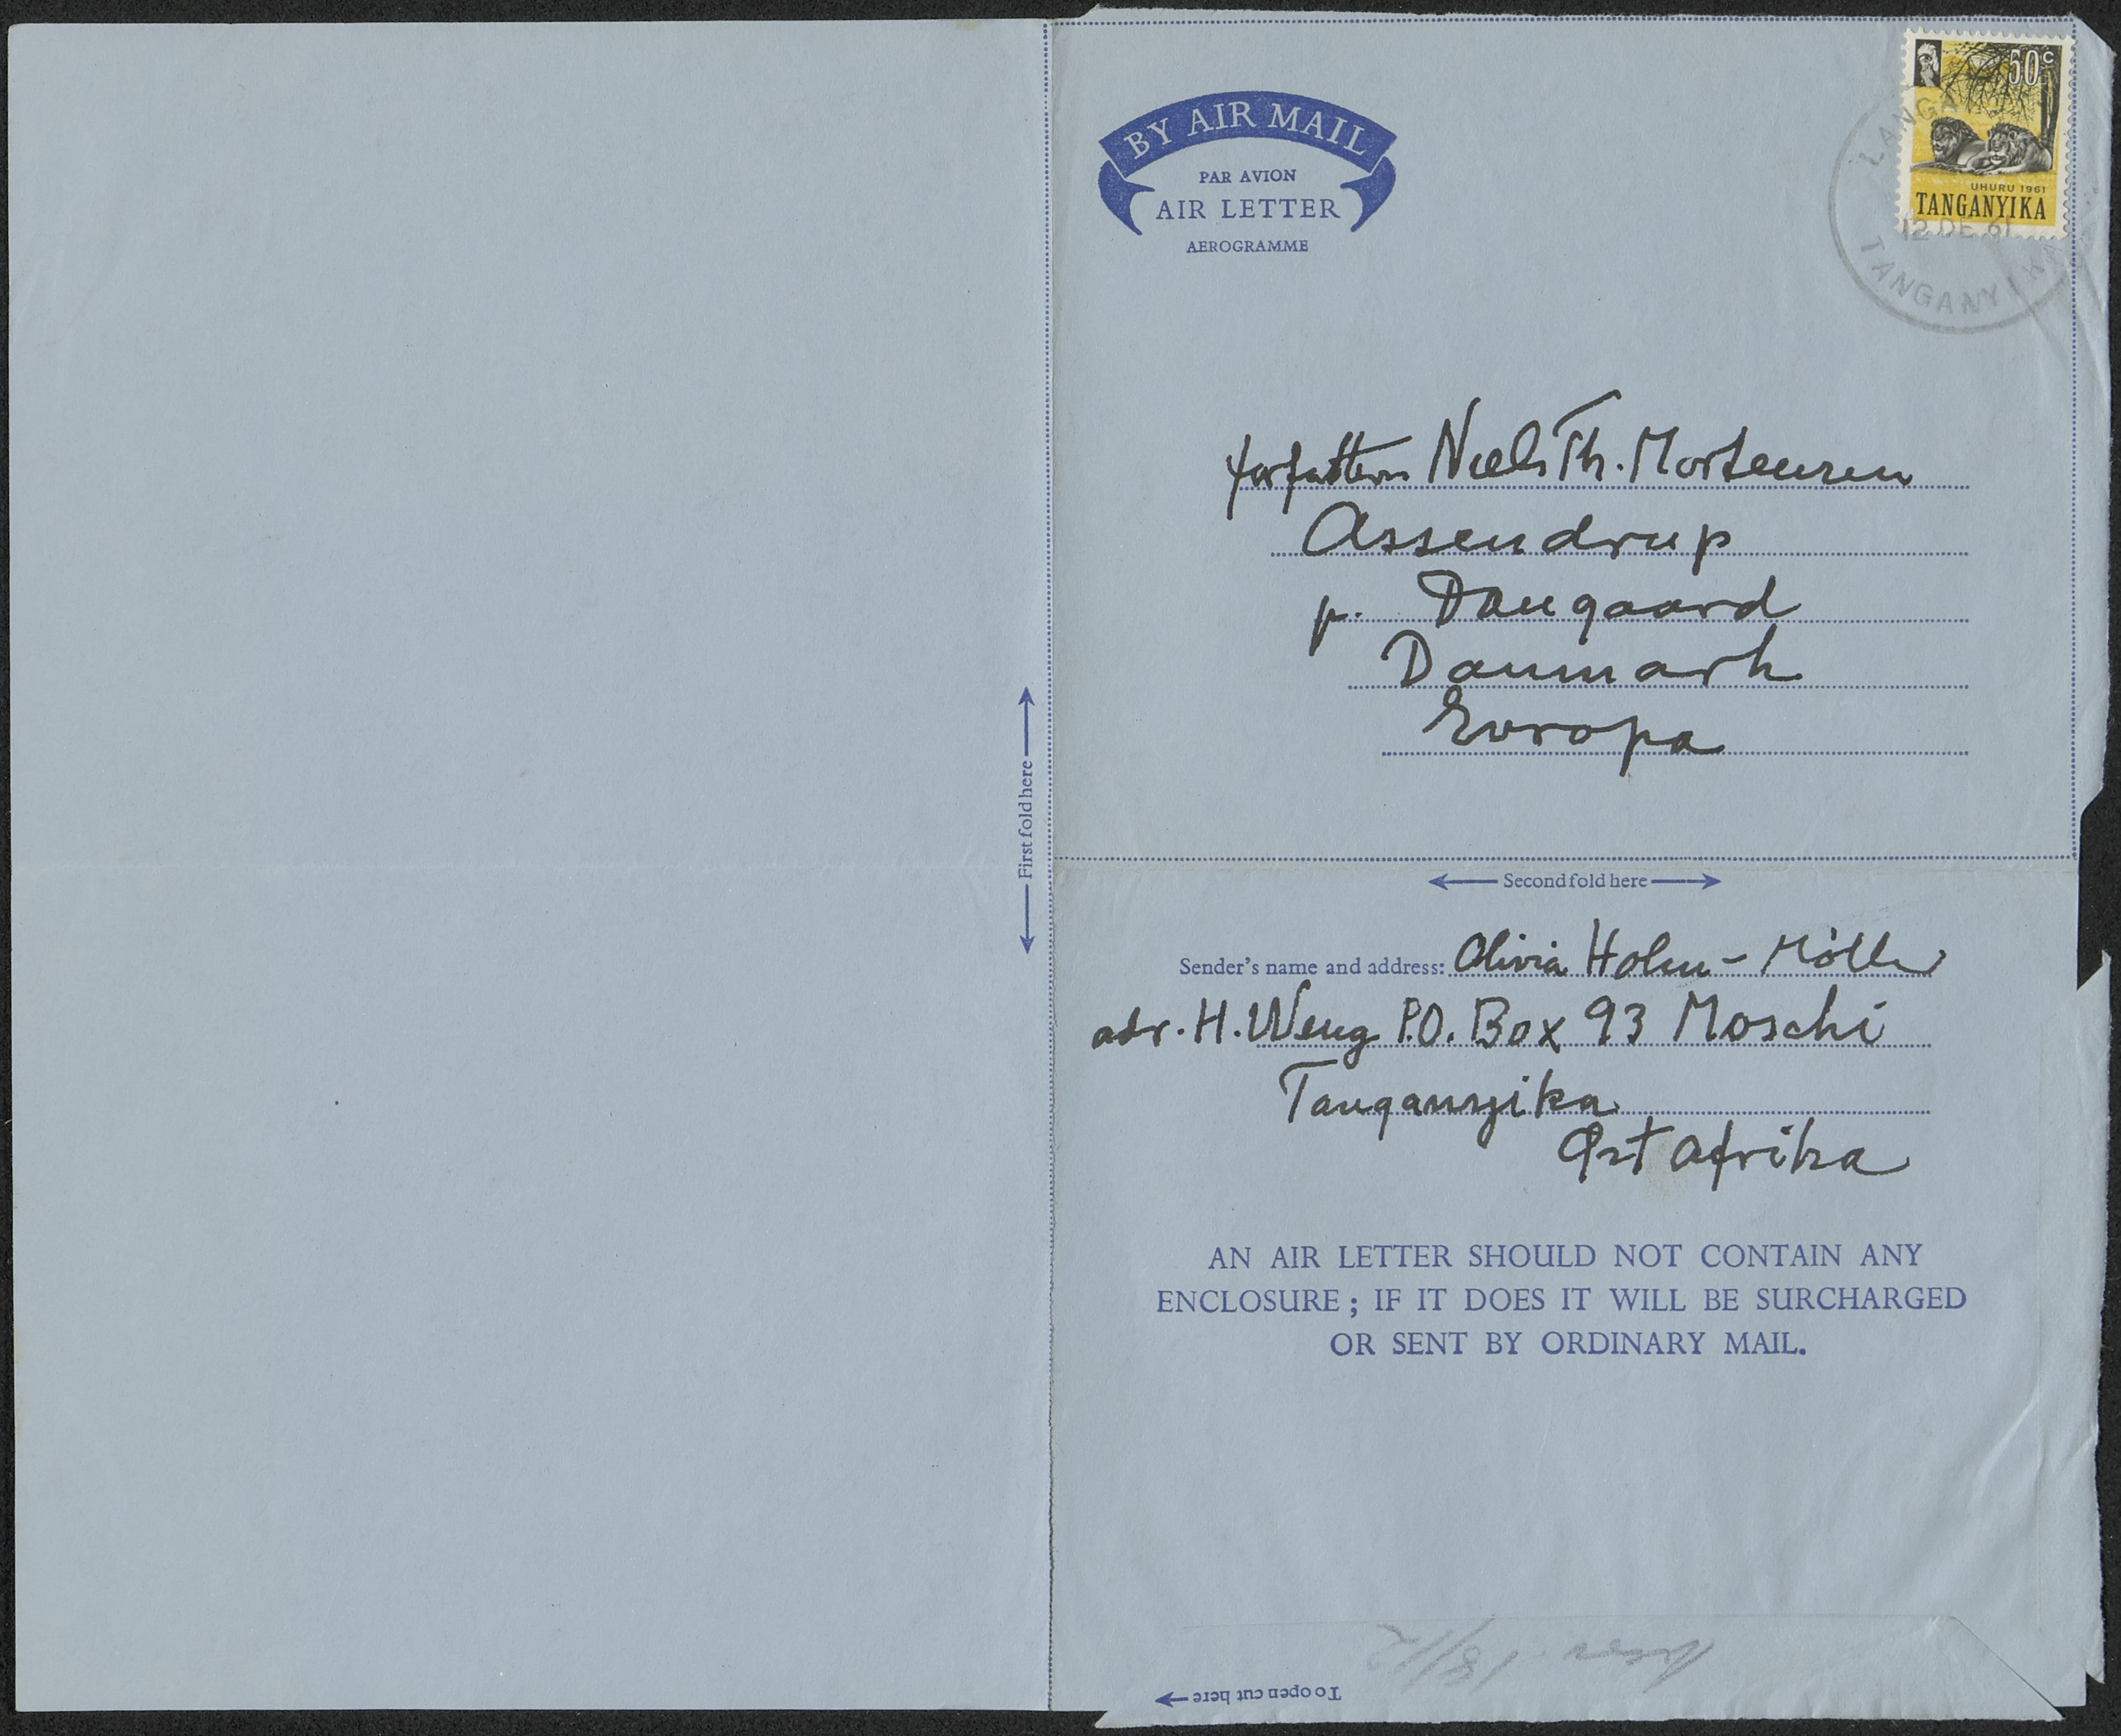 BY AIR MAIL
PAR AVION
AIR LETTER
AEROGRAMME
50c
UHURU 1961
TANGANYIKA
LANGA
12 DE 61
TANGANYIKA
forfatteren Niels Th. Mortensen
Assendrup
p. Daugaard
Danmark
Evropa
First fold here
Second fold here
Sender's name and address: Olivia Holm-Möller
adr. H. Weng P.O. Box 93 Moschi
Tanganyika
Øst Afrika
AN AIR LETTER SHOULD NOT CONTAIN ANY
ENCLOSURE; IF IT DOES IT WILL BE SURCHARGED
OR SENT BY ORDINARY MAIL.
18/12
To open cut here